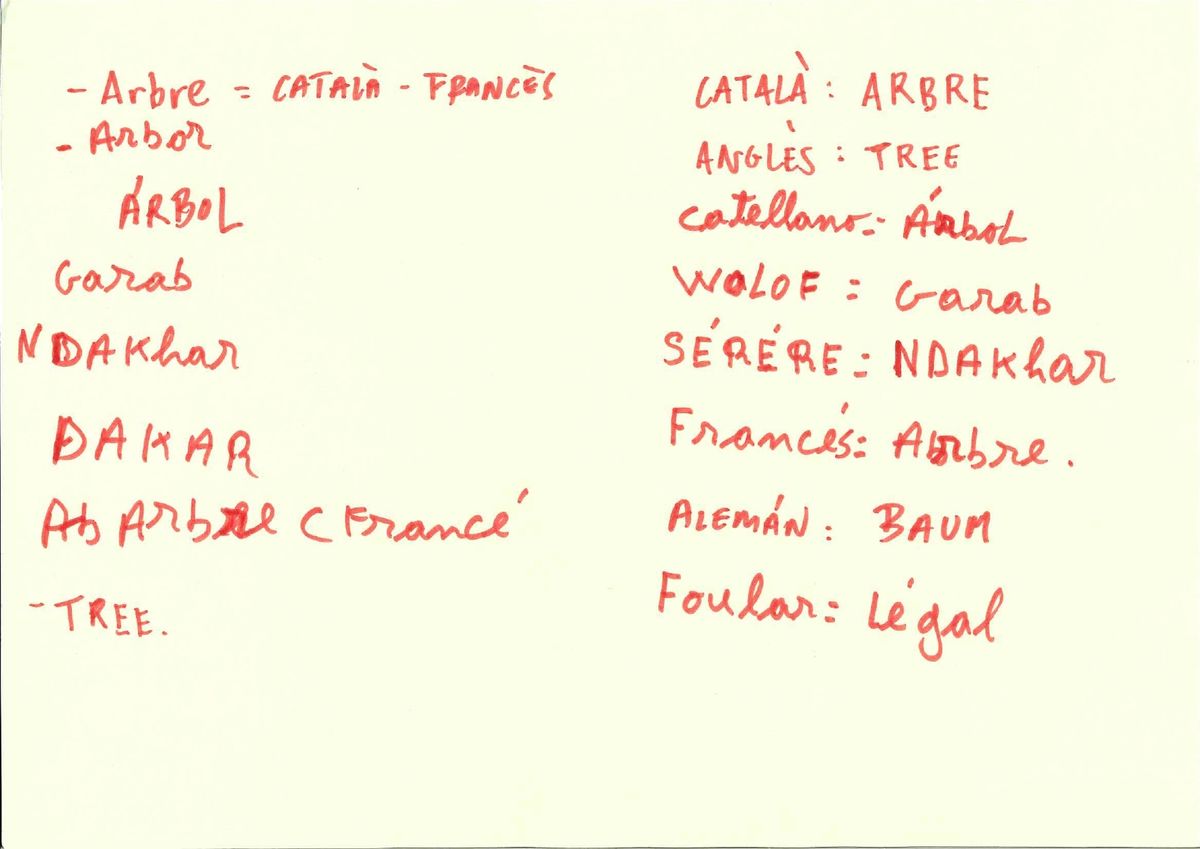 - Arbre = CATALÀ - FRANCÈS
- Arbor
ÁRBOL
Garab
NDAKhar
DAKAR
Ab Arbre ( Francé
- TREE.
CATALÀ : ARBRE
ANGLÈS : TREE
Catellano = Árbol
WOLOF = Garab
SÉRÉRE = NDAKhar
Francés = Arbre.
ALEMÁN : BAUM
Foular = Légal